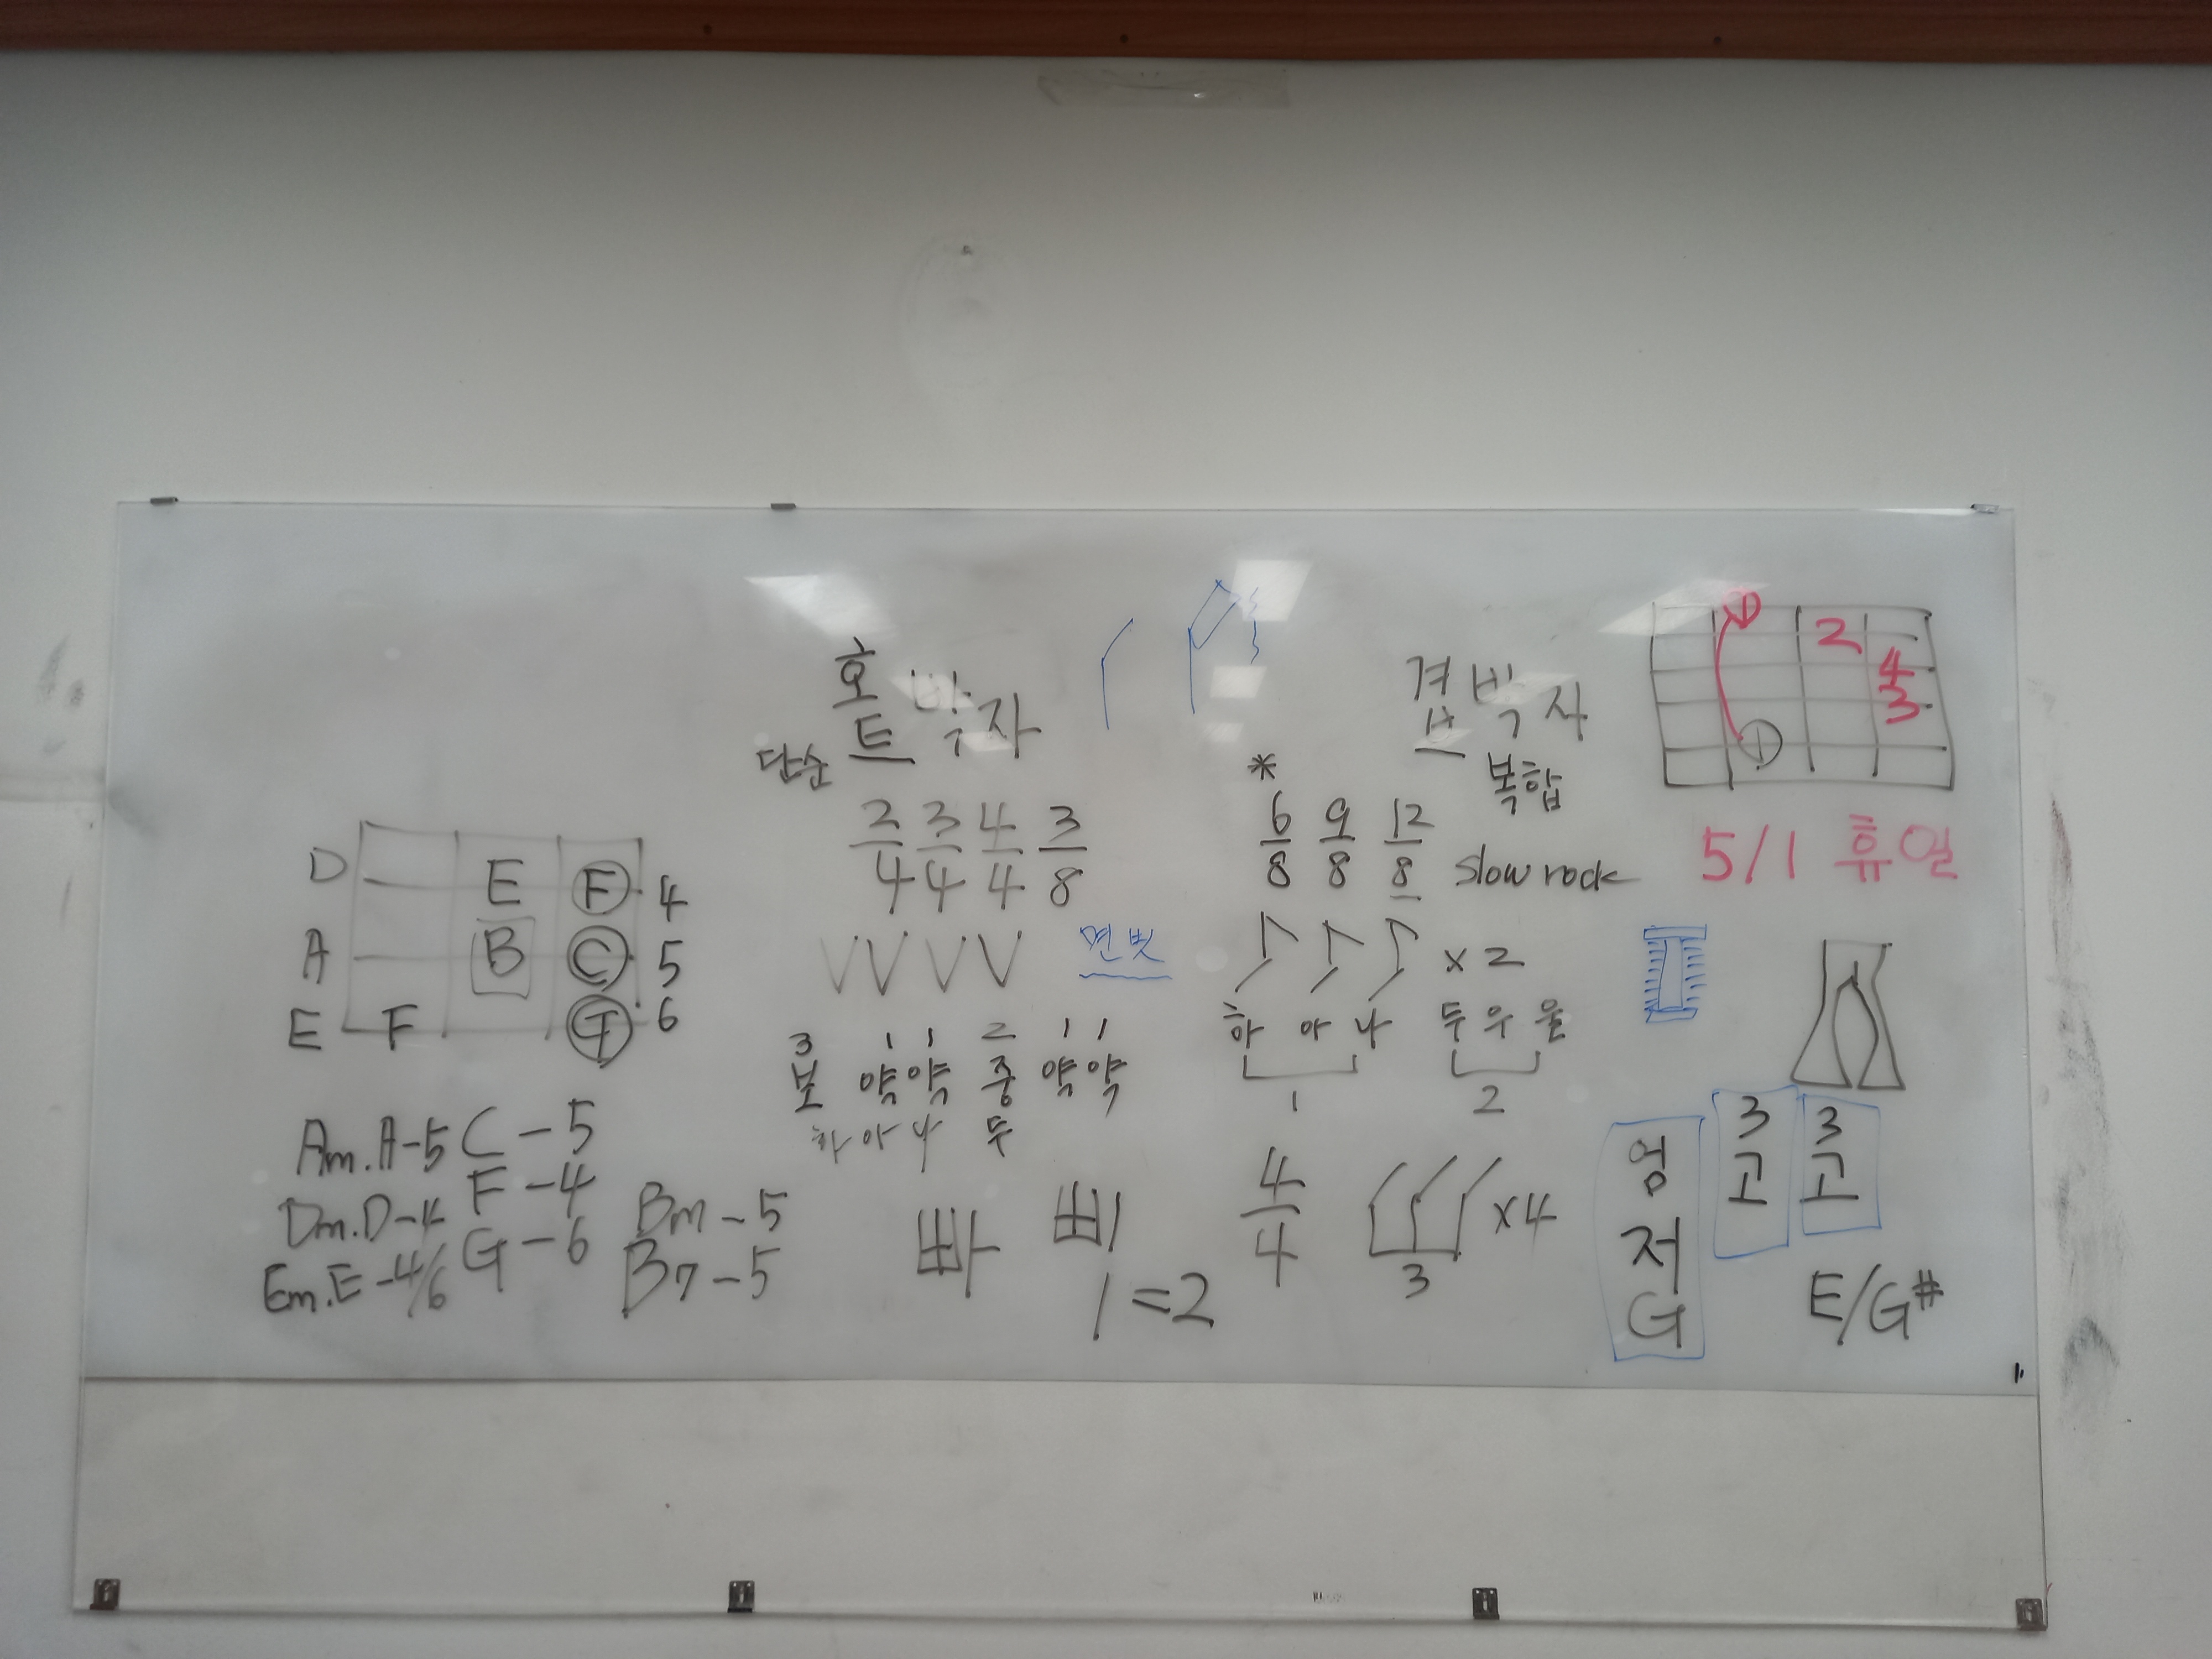 D E F 4
A B C 5
E F G 6
Am.A-5 C-5
Dm.D-4 F-4
Em.E-4/6 G-6
Bm-5
B7-5
홑박자
단순
2/4 3/4 4/4 3/8
면봇
3 1 1 2 1 1
보 약 약 중 약 약
하 아 나 두
빠 삐
1=2
겹박자
복합
*
6/8 9/8 12/8 Slow rock
x2
하 아 나 두 우 울
1 2
4/4 3 x4
1 2
4
3
1
5/1 휴일
엄 저 G
3 고
3 고
E/G#